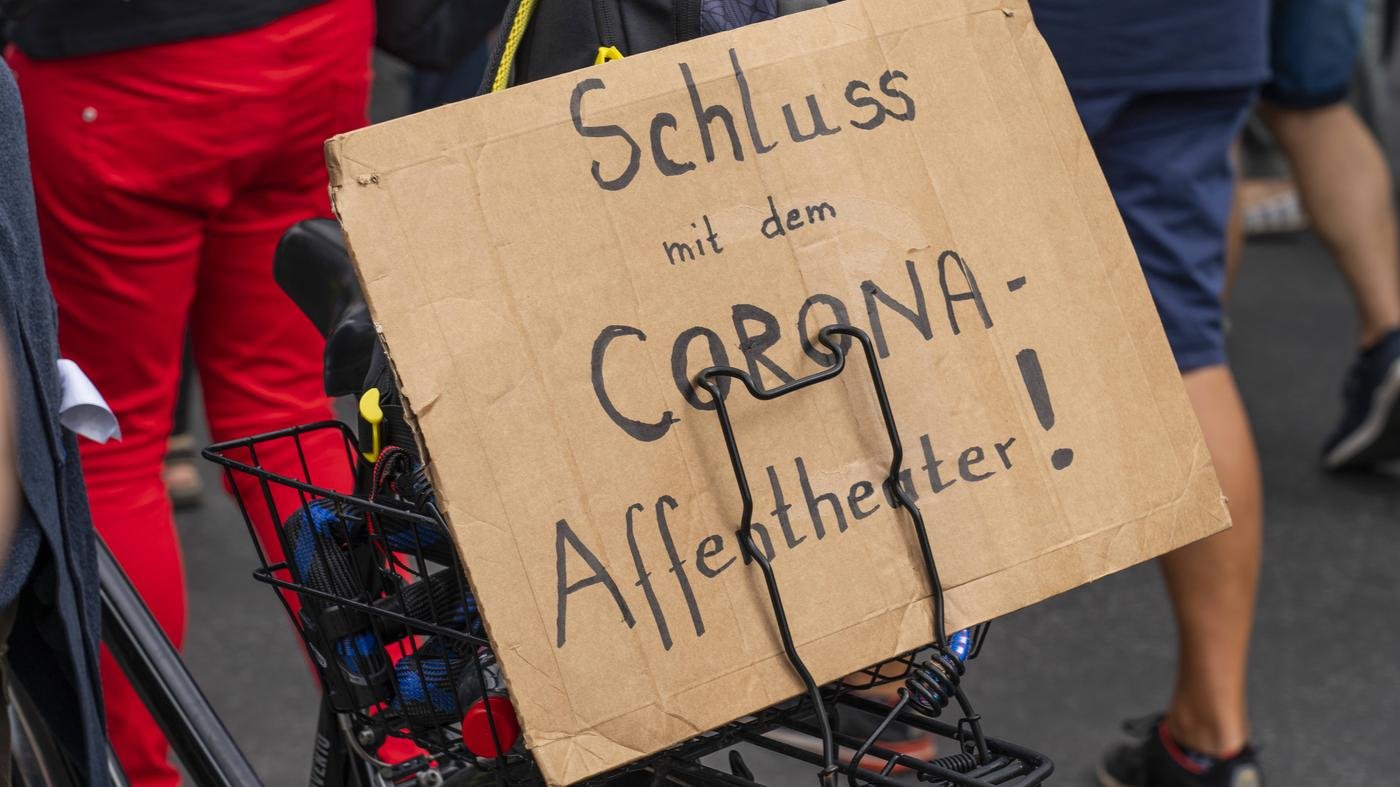 Schluss
mit dem
CORONA-
Affentheater!